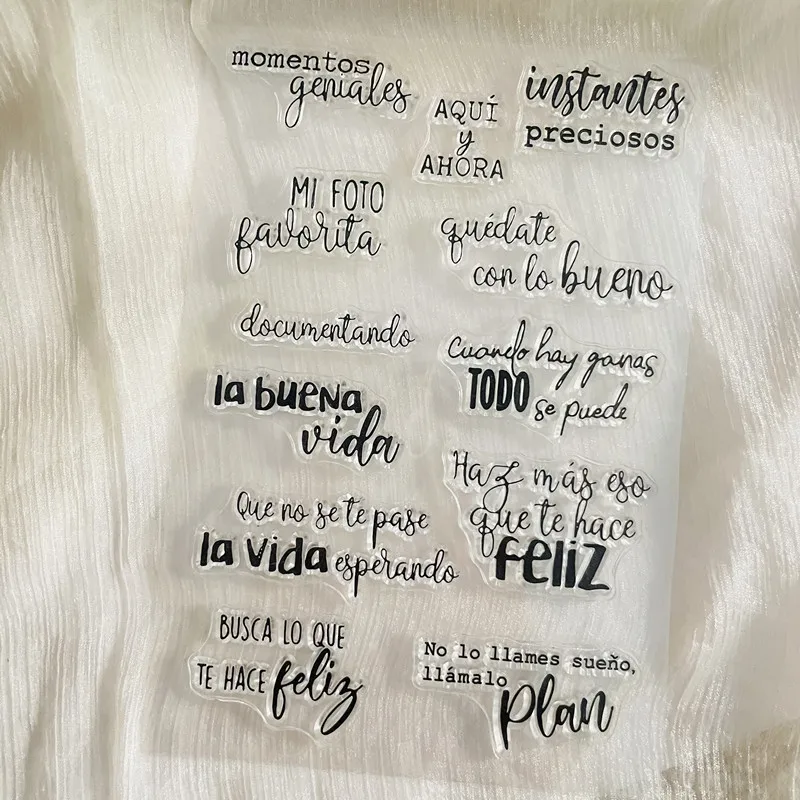 momentos
geniales
AQUÍ
y
AHORA
instantes
preciosos
MI FOTO
favorita
quédate
con lo bueno
documentando
Cuando hay ganas
TODO se puede
la buena
vida
Haz más eso
que te hace
feliz
Que no se te pase
la vida esperando
BUSCA LO QUE
TE HACE feliz
No lo llames sueño,
llámalo
plan